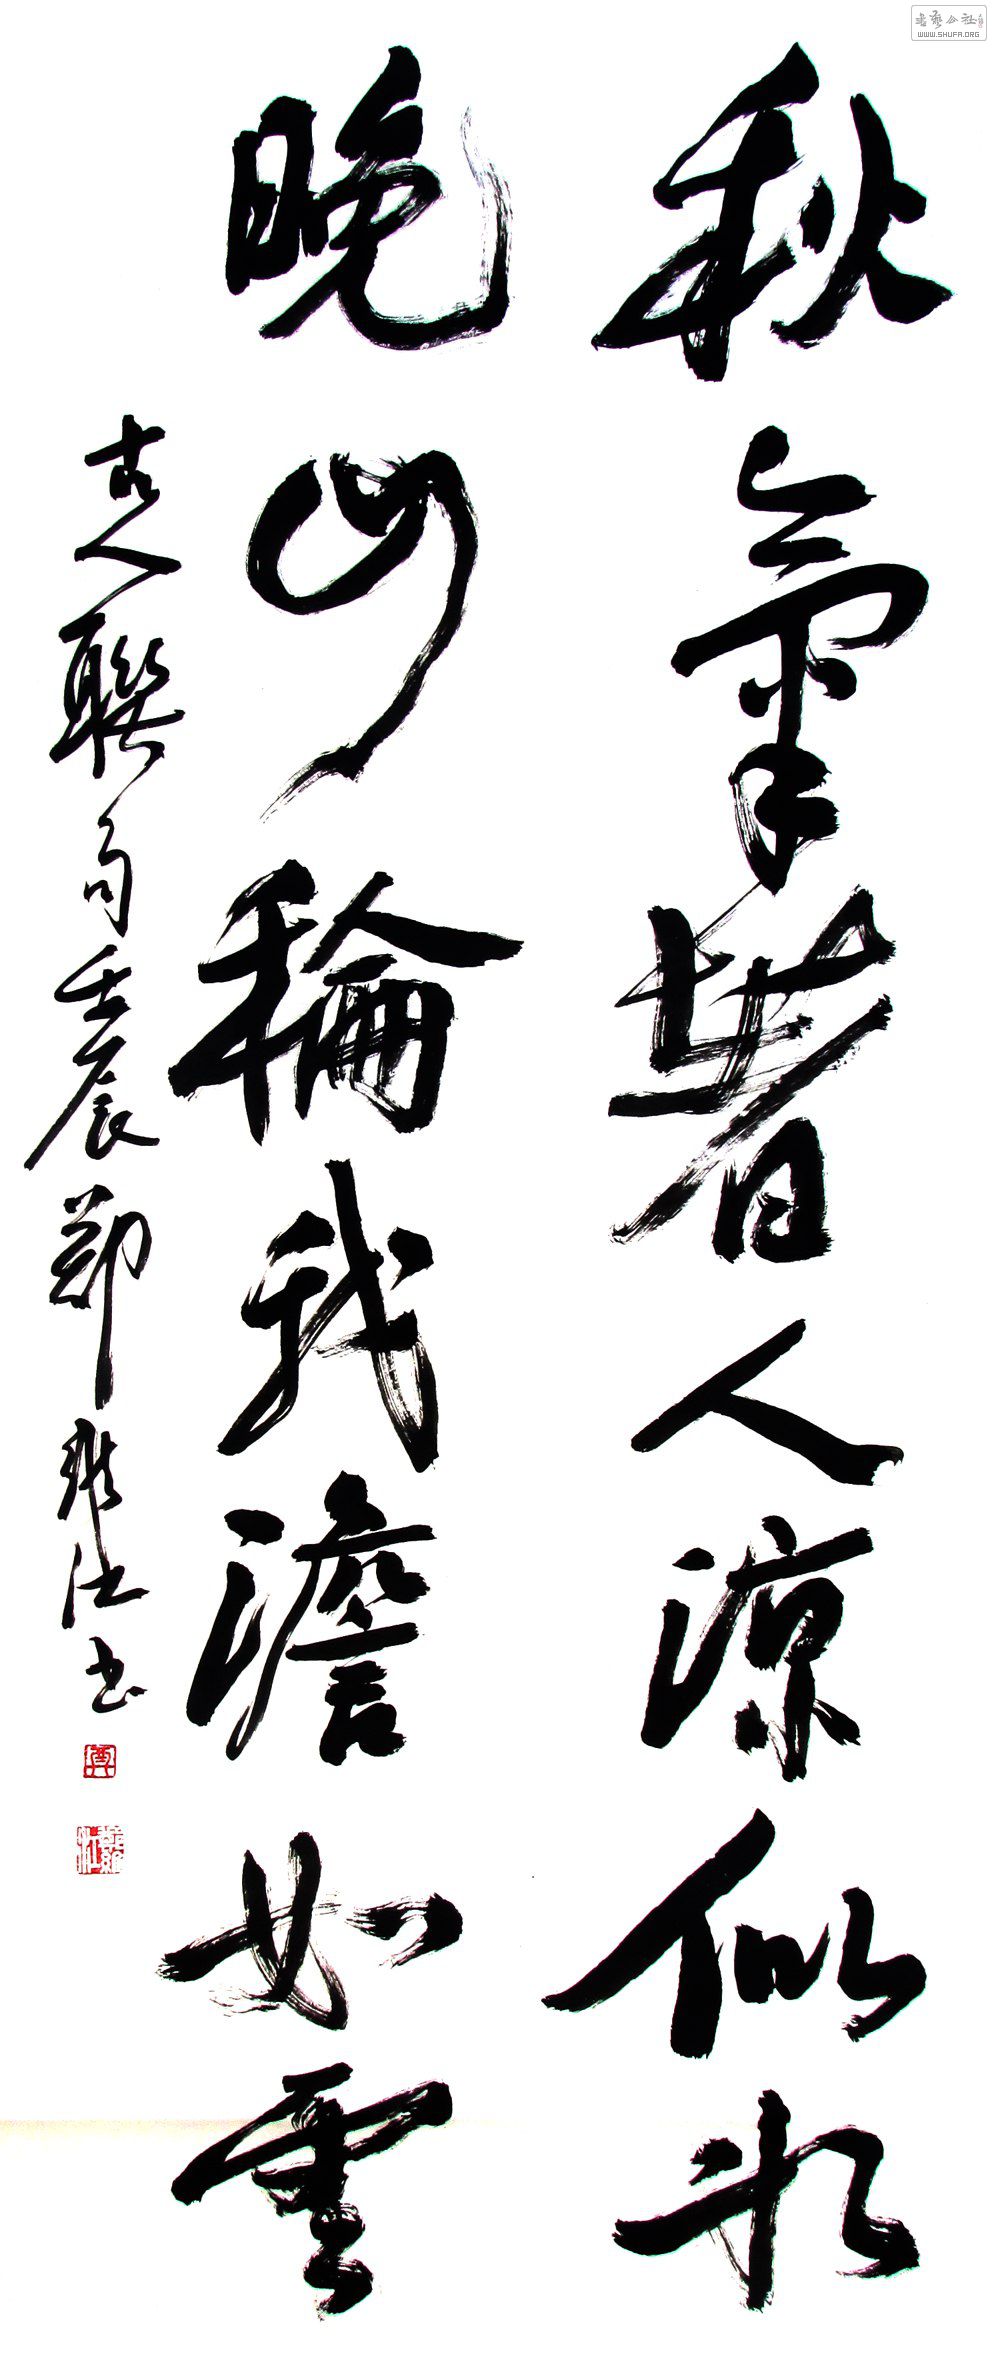 書藝公社
WWW.SHUFA.ORG
秋氣著人涼似水
晚山輸我澹如雲
古人聯句壬辰鄭仕書